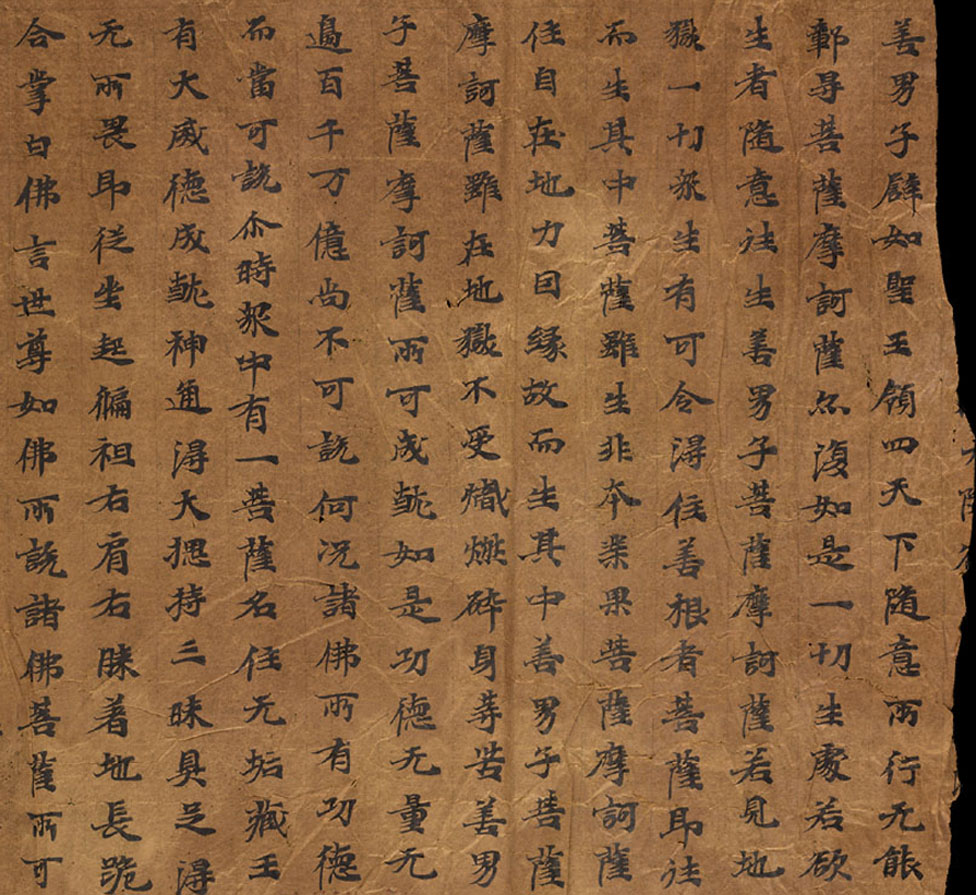 善男子辟如聖王領四天下随意所行无能
鄣㝵菩薩摩訶薩亦復如是一切生處若欲
生者随意往生善男子菩薩摩訶薩若見地
獄一切衆生有可令得住善根者菩薩即往
而生其中菩薩雖生非本業果菩薩摩訶薩
住自在地力因緣故而生其中善男子菩薩
摩訶薩雖在地獄不受熾燃碎身等苦善男
子菩薩摩訶薩所可成就如是功德无量无
邊百千万億尚不可説何況諸佛所有功德
而當可説尒時衆中有一菩薩名住无垢藏王
有大威德成就神通得大揔持三昧具足得
无所畏即從坐起徧袒右肩右膝著地長跪
合掌白佛言世尊如佛所説諸佛菩薩所可